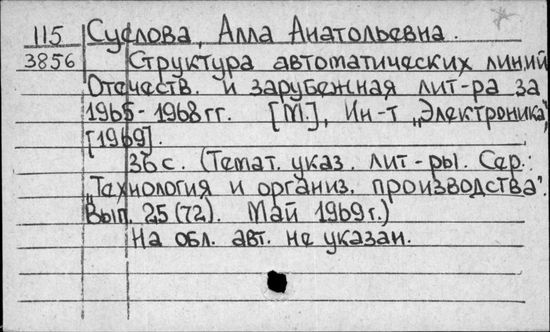 115 Суслова, Алла Анатольевна.
3856 Структура автоматических линий
Отечеств. и зарубежная лит-ра за
1965-1968 гг. [М.], Ин-т „Электроника",
[1969].
36 с. (Темат. указ. лит-ры. Сер.:
„Технология и организ. производства".
Вып. 25 (72). Май 1969 г.)
На обл. авт. не указан.